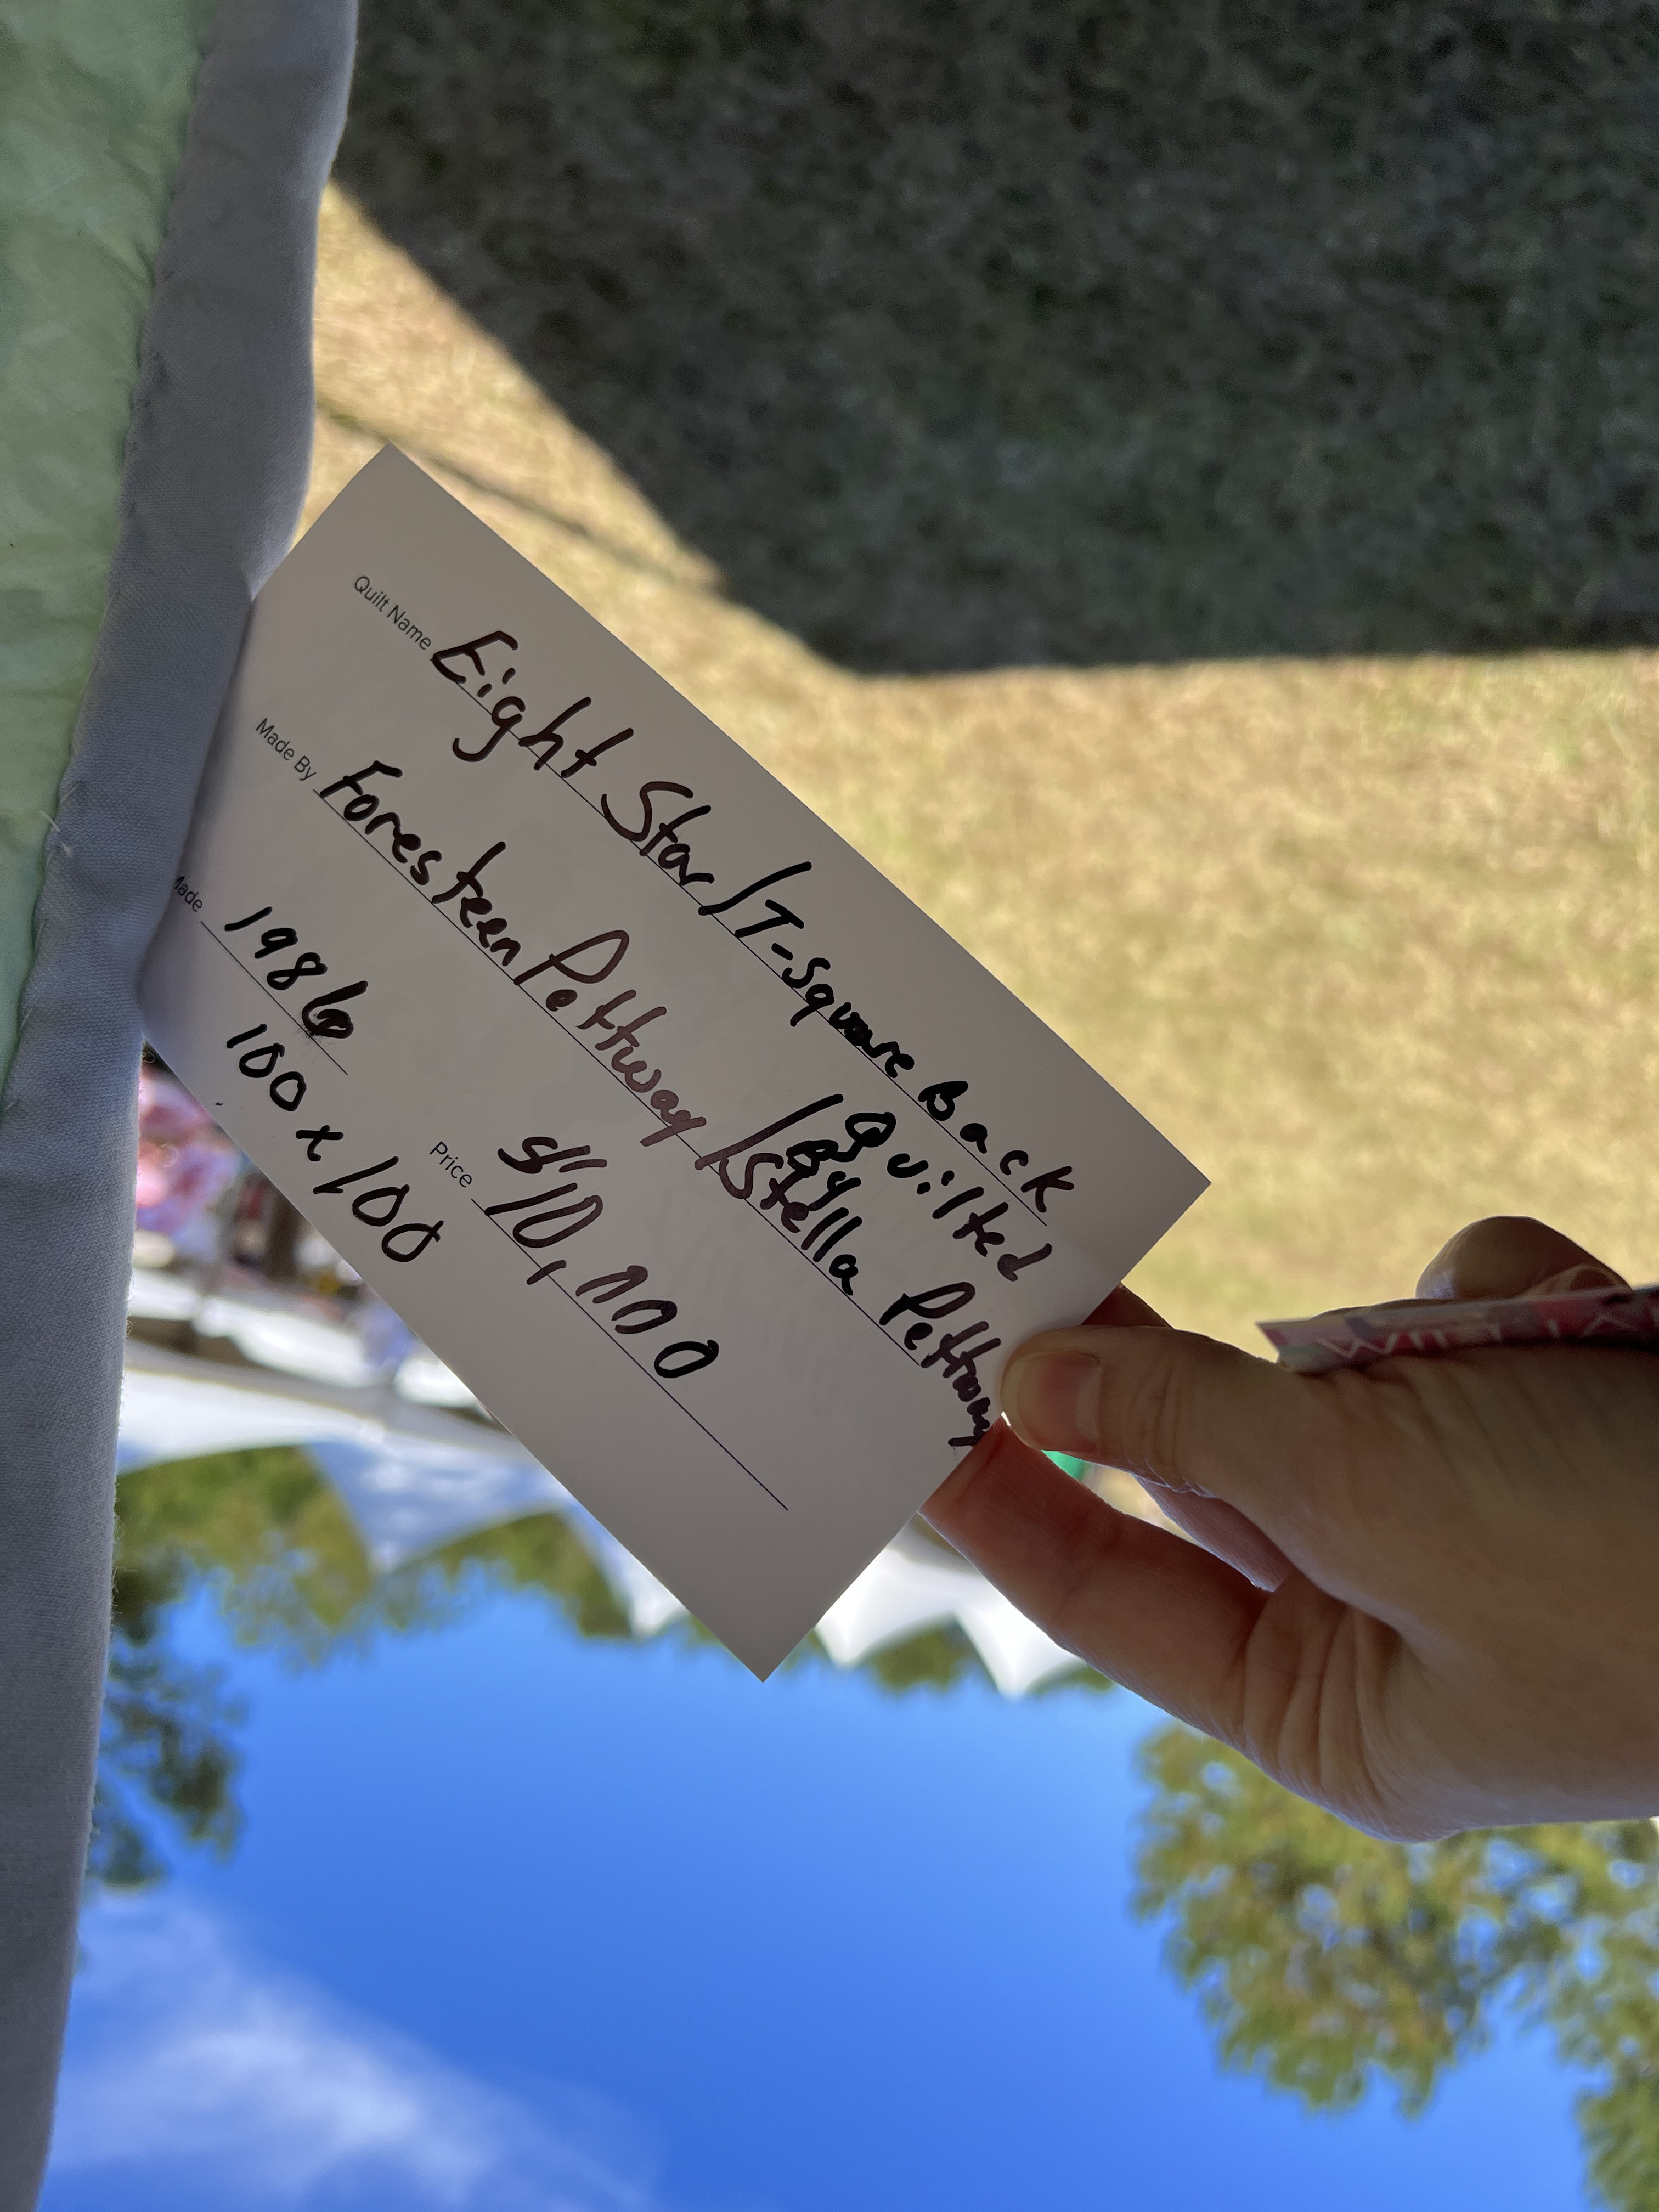 Quilt Name Eight Star/T-Square Back
/Quilted
by
Made By Foresteen Pettway/Stella Pettway
Made 1986
100 x 100
Price $10,000